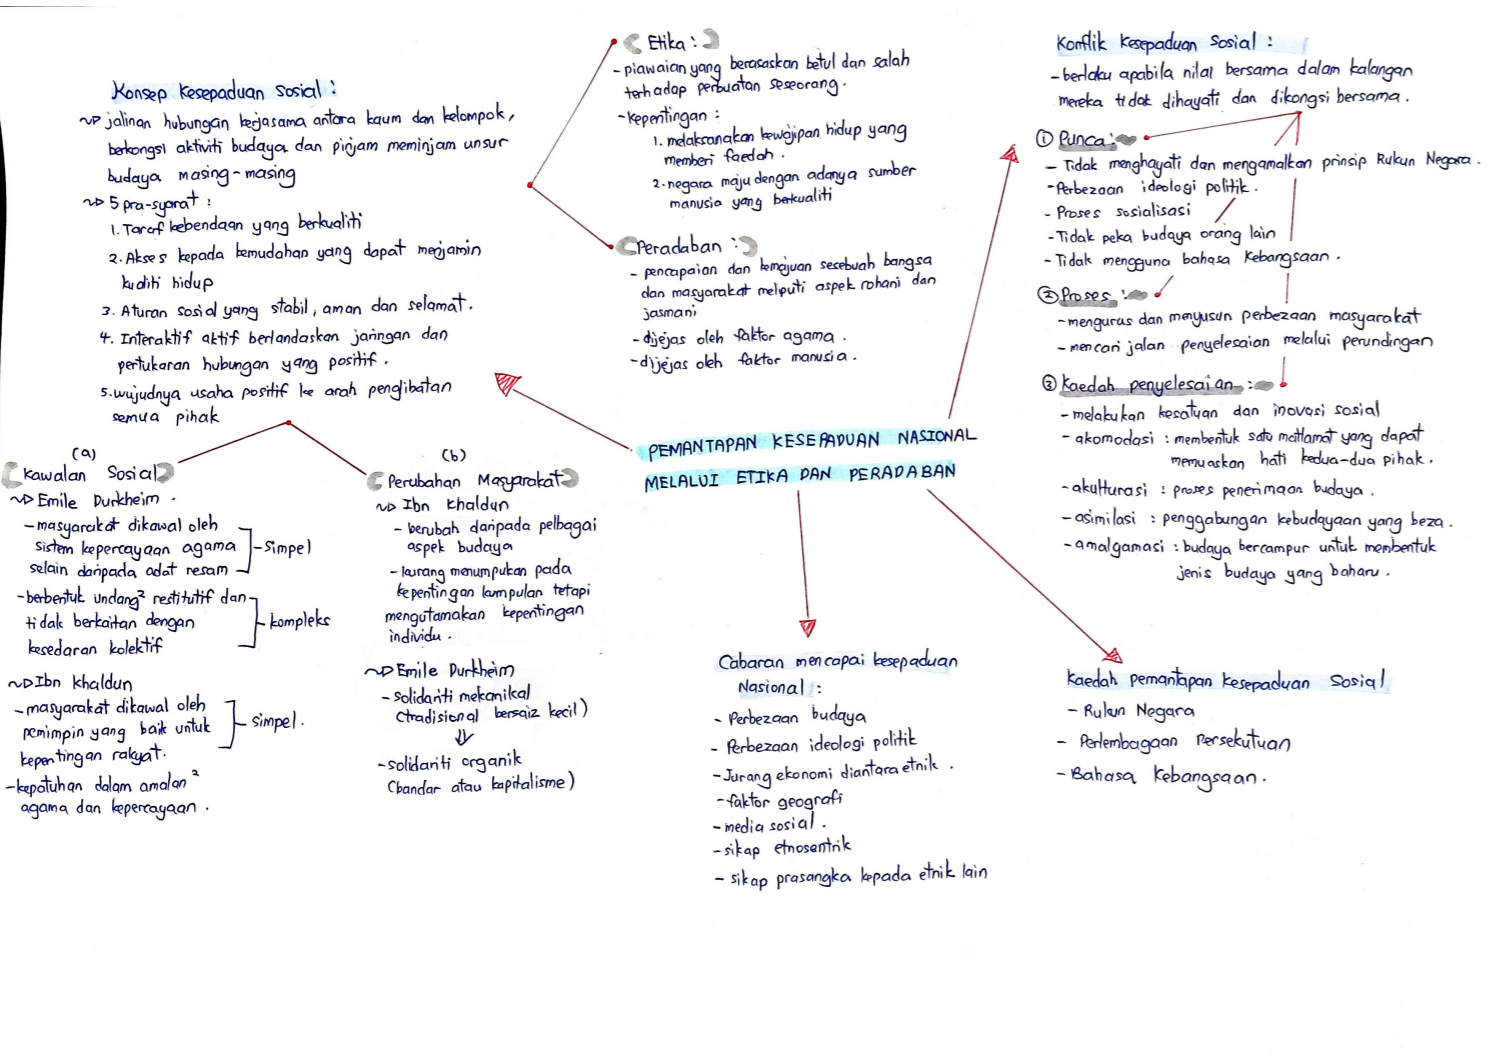 PEMANTAPAN KESEPADUAN NASIONAL
MELALUI ETIKA DAN PERADABAN
Konsep Kesepaduan Sosial :
jalinan hubungan kerjasama antara kaum dan kelompok,
berkongsi aktiviti budaya dan pinjam meminjam unsur
budaya masing-masing
5 pra-syarat :
1. Taraf kebendaan yang berkualiti
2. Akses kepada kemudahan yang dapat menjamin
kualiti hidup
3. Aturan sosial yang stabil, aman dan selamat.
4. Interaktif aktif berlandaskan jaringan dan
pertukaran hubungan yang positif.
5. wujudnya usaha positif ke arah penglibatan
semua pihak
(a)
Kawalan Sosial
Emile Durkheim .
- masyarakat dikawal oleh
sistem kepercayaan agama
selain daripada adat resam
- simpel
- berbentuk undang² restitutif dan
tidak berkaitan dengan
kesedaran kolektif
- kompleks
Ibn Khaldun
- masyarakat dikawal oleh
pemimpin yang baik untuk
kepentingan rakyat.
- simpel.
- kepatuhan dalam amalan²
agama dan kepercayaan .
(b)
Perubahan Masyarakat
Ibn Khaldun
- berubah daripada pelbagai
aspek budaya
- kurang menumpukan pada
kepentingan kumpulan tetapi
mengutamakan kepentingan
individu .
Emile Durkheim
- solidariti mekanikal
(tradisional bersaiz kecil)
⇓
- solidariti organik
(bandar atau kapitalisme)
Etika :
- piawaian yang berasaskan betul dan salah
terhadap perbuatan seseorang.
- Kepentingan :
1. melaksanakan kewajipan hidup yang
memberi faedah .
2. negara maju dengan adanya sumber
manusia yang berkualiti
Peradaban :
- pencapaian dan kemajuan sesebuah bangsa
dan masyarakat meliputi aspek rohani dan
jasmani
- dijejas oleh faktor agama .
- dijejas oleh faktor manusia .
Konflik Kesepaduan Sosial :
- berlaku apabila nilai bersama dalam kalangan
mereka tidak dihayati dan dikongsi bersama .
① Punca :
- Tidak menghayati dan mengamalkan prinsip Rukun Negara .
- Perbezaan ideologi politik .
- Proses sosialisasi
- Tidak peka budaya orang lain
- Tidak mengguna bahasa Kebangsaan .
② Proses :
- mengurus dan menyusun perbezaan masyarakat
- mencari jalan penyelesaian melalui perundingan
③ Kaedah penyelesaian :
- melakukan kesatuan dan inovasi sosial
- akomodasi : membentuk satu matlamat yang dapat
memuaskan hati kedua-dua pihak .
- akulturasi : proses penerimaan budaya .
- asimilasi : penggabungan kebudayaan yang beza .
- amalgamasi : budaya bercampur untuk membentuk
jenis budaya yang baharu .
Cabaran mencapai kesepaduan
Nasional :
- Perbezaan budaya
- Perbezaan ideologi politik
- Jurang ekonomi diantara etnik .
- faktor geografi
- media sosial .
- sikap etnosentrik
- sikap prasangka kepada etnik lain
Kaedah pemantapan Kesepaduan Sosial
- Rukun Negara
- Perlembagaan Persekutuan
- Bahasa Kebangsaan .